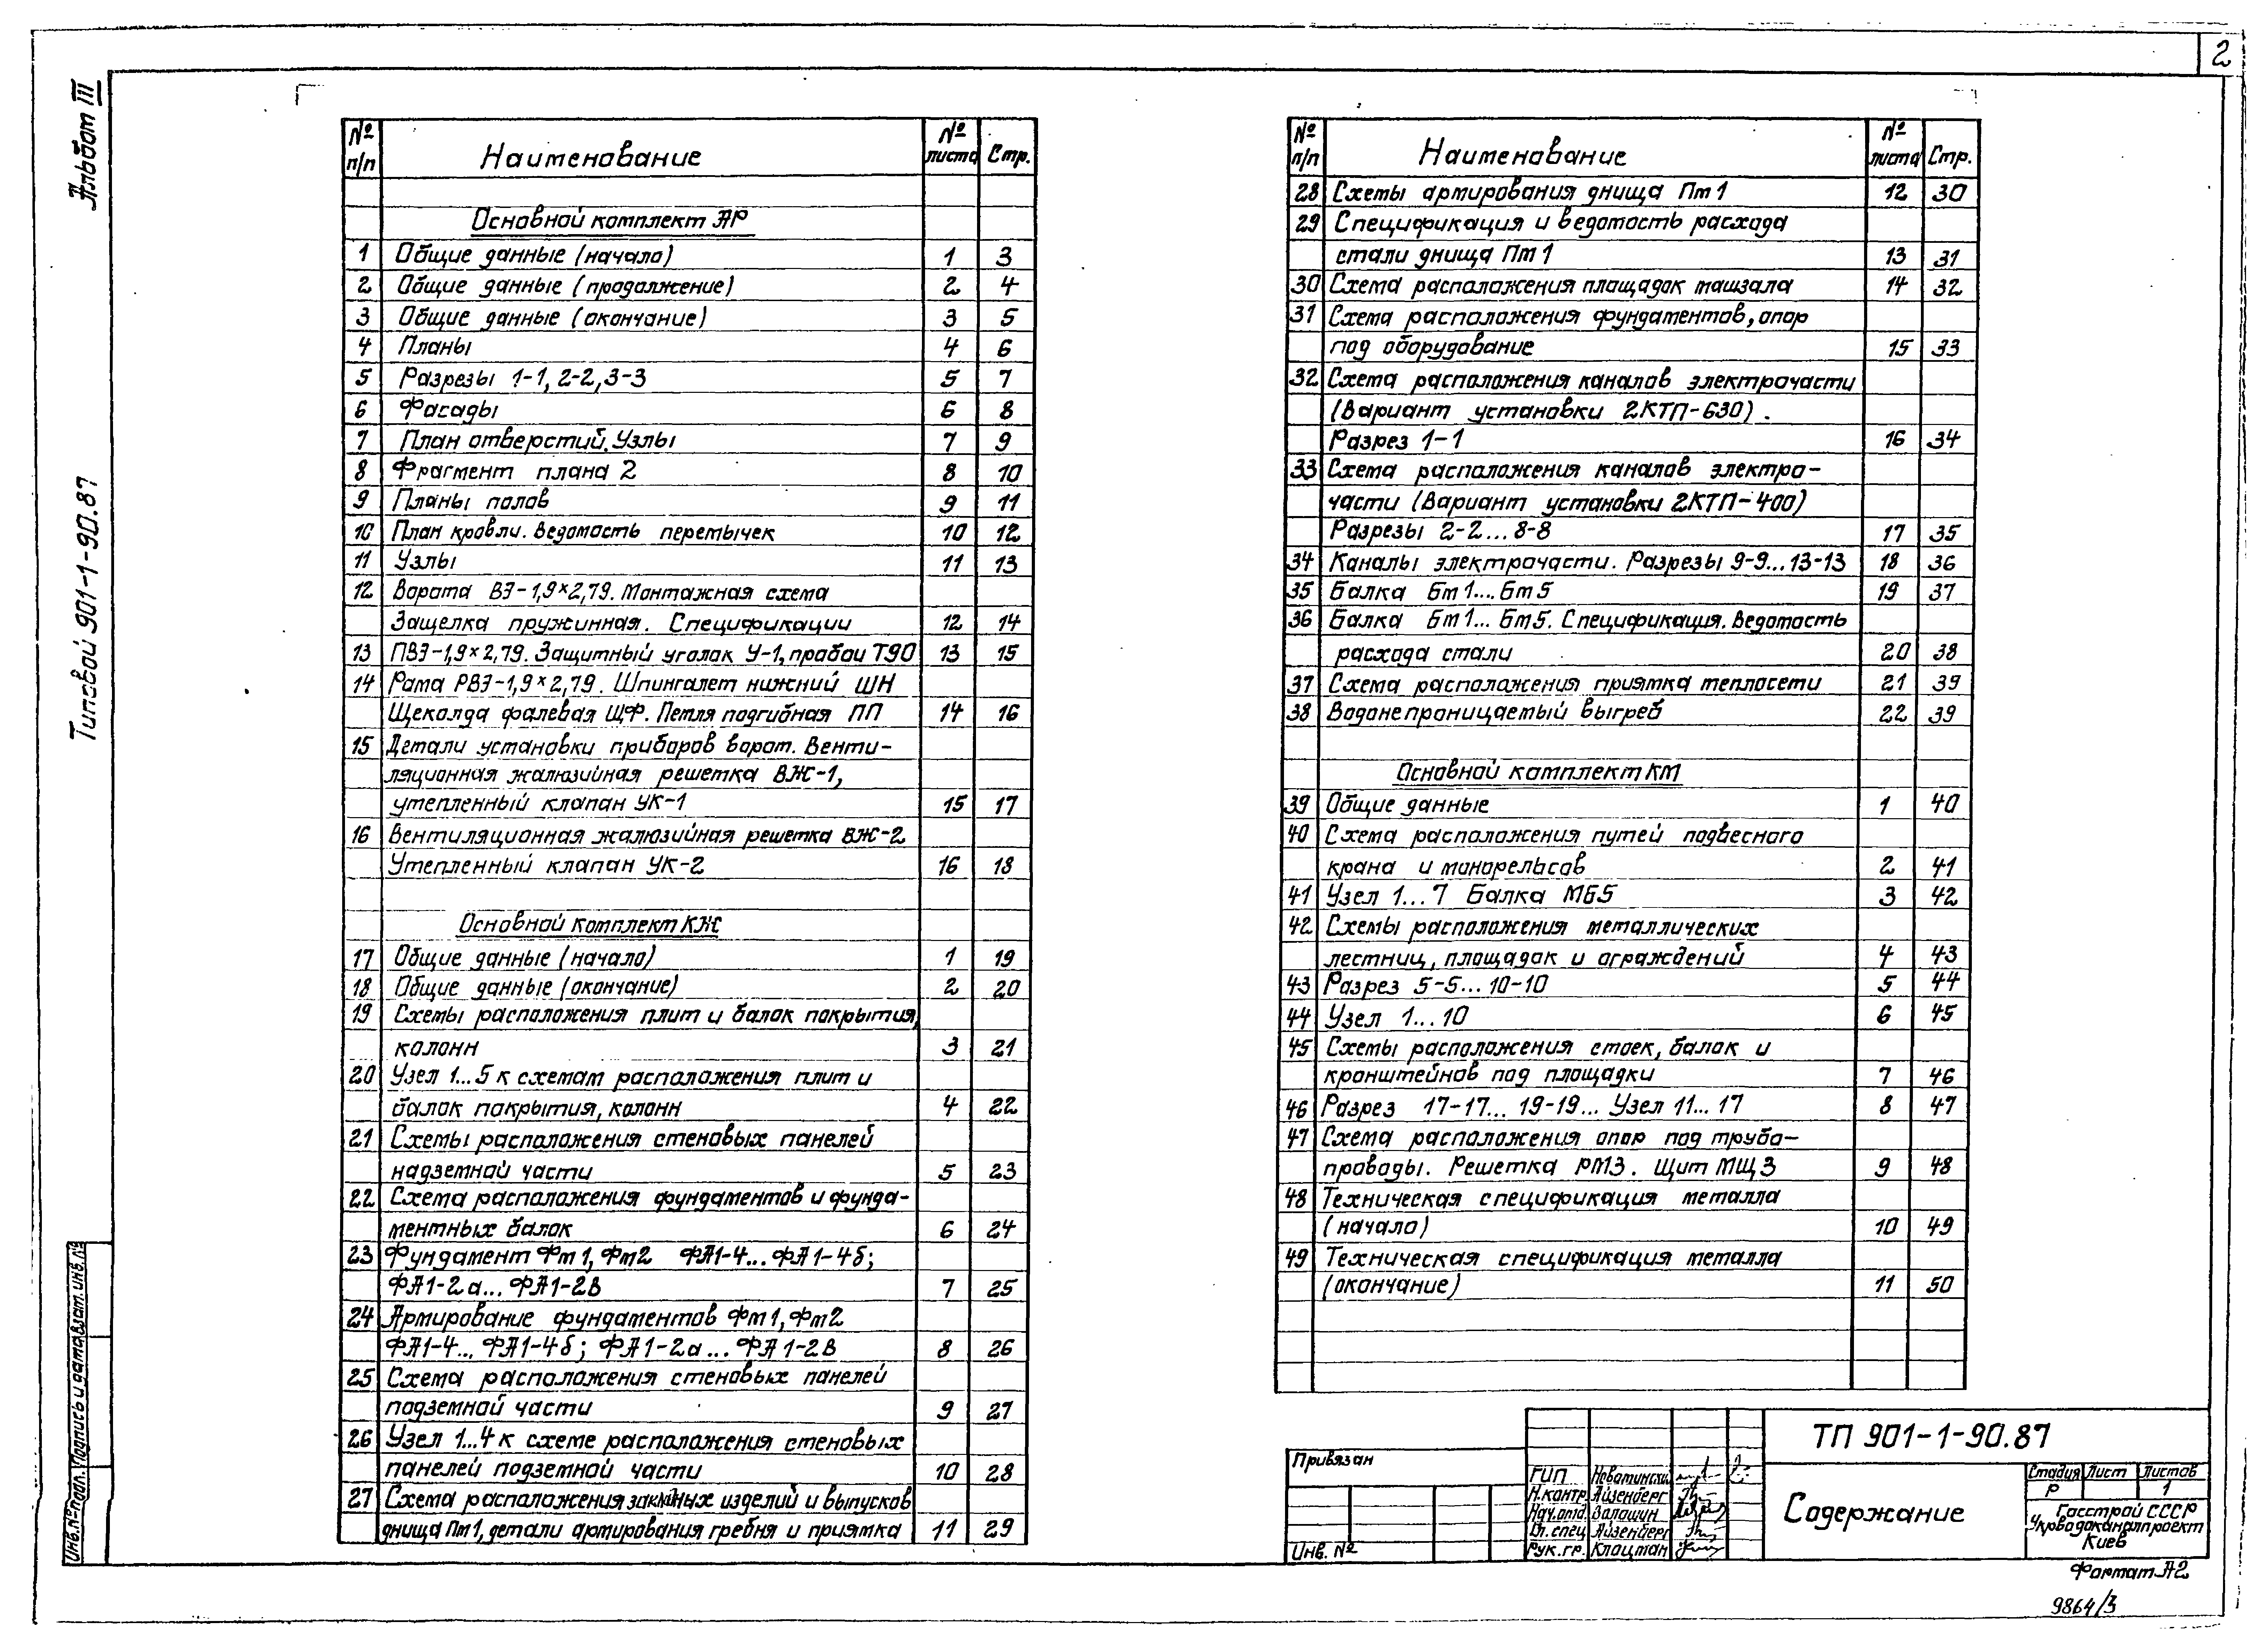 2
Альбом III
Типовой 901-1-90.87
№ п/п Наименование № листа Стр.
Основной комплект АР
1 Общие данные (начало) 1 3
2 Общие данные (продолжение) 2 4
3 Общие данные (окончание) 3 5
4 Планы 4 6
5 Разрезы 1-1, 2-2, 3-3 5 7
6 Фасады 6 8
7 План отверстий. Узлы 7 9
8 Фрагмент плана 2 8 10
9 Планы полов 9 11
10 План кровли. Ведомость перемычек 10 12
11 Узлы 11 13
12 Ворота ВЭ-1,9×2,79. Монтажная схема
Защелка пружинная. Спецификации 12 14
13 ПВЭ-1,9×2,79. Защитный уголок У-1, пробои Т90 13 15
14 Рама РВЭ-1,9×2,79. Шпингалет нижний ШН
Щеколда фалевая ЩФ. Петля подгибная ПП 14 16
15 Детали установки приборов ворот. Венти-
ляционная жалюзийная решетка ВЖ-1,
утепленный клапан УК-1 15 17
16 Вентиляционная жалюзийная решетка ВЖ-2
Утепленный клапан УК-2 16 18
Основной комплект КЖ
17 Общие данные (начало) 1 19
18 Общие данные (окончание) 2 20
19 Схемы расположения плит и балок покрытия,
колонн 3 21
20 Узел 1...5 к схемам расположения плит и
балок покрытия, колонн 4 22
21 Схемы расположения стеновых панелей
надземной части 5 23
22 Схема расположения фундаментов и фунда-
ментных балок 6 24
23 Фундамент Фм1, Фм2 ФА1-4...ФА1-4б;
ФА1-2а...ФА1-2в 7 25
24 Армирование фундаментов Фм1, Фм2
ФА1-4...ФА1-4б; ФА1-2а...ФА1-2в 8 26
25 Схема расположения стеновых панелей
подземной части 9 27
26 Узел 1...4 к схеме расположения стеновых
панелей подземной части 10 28
27 Схема расположения закладных изделий и выпусков
днища Пм1, детали армирования гребня и приямка 11 29
№ п/п Наименование № листа Стр.
28 Схемы армирования днища Пм1 12 30
29 Спецификация и ведомость расхода
стали днища Пм1 13 31
30 Схема расположения площадок машзала 14 32
31 Схема расположения фундаментов, опор
под оборудование 15 33
32 Схема расположения каналов электрочасти
(Вариант установки 2КТП-630).
Разрез 1-1 16 34
33 Схема расположения каналов электро-
части (Вариант установки 2КТП-400)
Разрезы 2-2...8-8 17 35
34 Каналы электрочасти. Разрезы 9-9...13-13 18 36
35 Балка Бм1...Бм5 19 37
36 Балка Бм1...Бм5. Спецификация. Ведомость
расхода стали 20 38
37 Схема расположения приямка теплосети 21 39
38 Водонепроницаемый выгреб 22 39
Основной комплект КМ
39 Общие данные 1 40
40 Схема расположения путей подвесного
крана и монорельсов 2 41
41 Узел 1...7 Балка МБ5 3 42
42 Схемы расположения металлических
лестниц, площадок и ограждений 4 43
43 Разрез 5-5...10-10 5 44
44 Узел 1...10 6 45
45 Схемы расположения стоек, балок и
кронштейнов под площадки 7 46
46 Разрез 17-17...19-19... Узел 11...17 8 47
47 Схема расположения опор под трубо-
проводы. Решетка РМ3. Щит МЩ3 9 48
48 Техническая спецификация металла
(начало) 10 49
49 Техническая спецификация металла
(окончание) 11 50
Инв.№ подл. Подпись и дата Взам. инв.№
Привязан
Инв. №
ГИП
Н.контр. Айзенберг
Нач.отд.
Гл. спец. Айзенберг
Рук.гр. Клоцман
ТП 901-1-90.87
Содержание
Стадия Лист Листов
Р 1
Госстрой СССР
Укрводоканалпроект
Киев
Формат А2
9864/3